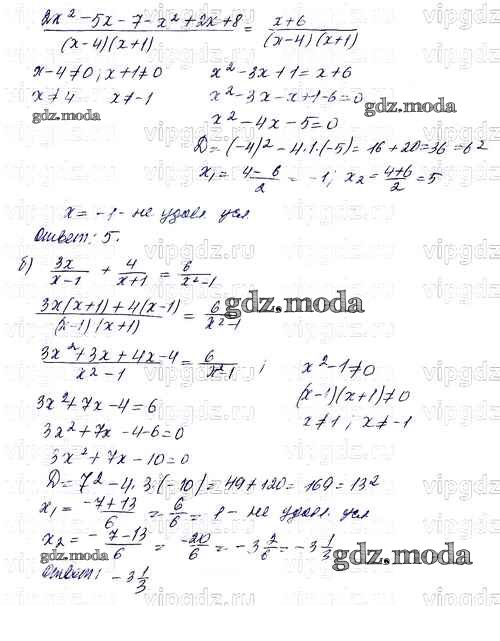 (2x² - 5x - 7 - x² + 2x + 8) / ((x-4)(x+1)) = (x+6) / ((x-4)(x+1))
x-4≠0; x+1≠0    x² - 3x + 1 = x + 6
x≠4    x≠-1    x² - 3x - x + 1 - 6 = 0
x² - 4x - 5 = 0
D = (-4)² - 4·1·(-5) = 16 + 20 = 36 = 6²
x₁ = (4-6)/2 = -1; x₂ = (4+6)/2 = 5
x = -1 - не удовл. усл
Ответ: 5.
б) 3x/(x-1) + 4/(x+1) = 6/(x²-1)
(3x(x+1) + 4(x-1)) / ((x-1)(x+1)) = 6/(x²-1)
(3x² + 3x + 4x - 4) / (x² - 1) = 6/(x²-1) ;    x² - 1 ≠ 0
(x-1)(x+1) ≠ 0
3x² + 7x - 4 = 6    x≠1; x≠-1
3x² + 7x - 4 - 6 = 0
3x² + 7x - 10 = 0
D = 7² - 4·3·(-10) = 49 + 120 = 169 = 13²
x₁ = (-7+13)/6 = 6/6 = 1 - не удовл. усл
x₂ = (-7-13)/6 = -20/6 = -3 2/6 = -3 1/3
Ответ: -3 1/3
gdz.moda
gdz.moda
gdz.moda
gdz.moda
gdz.moda
vipgdz.ru